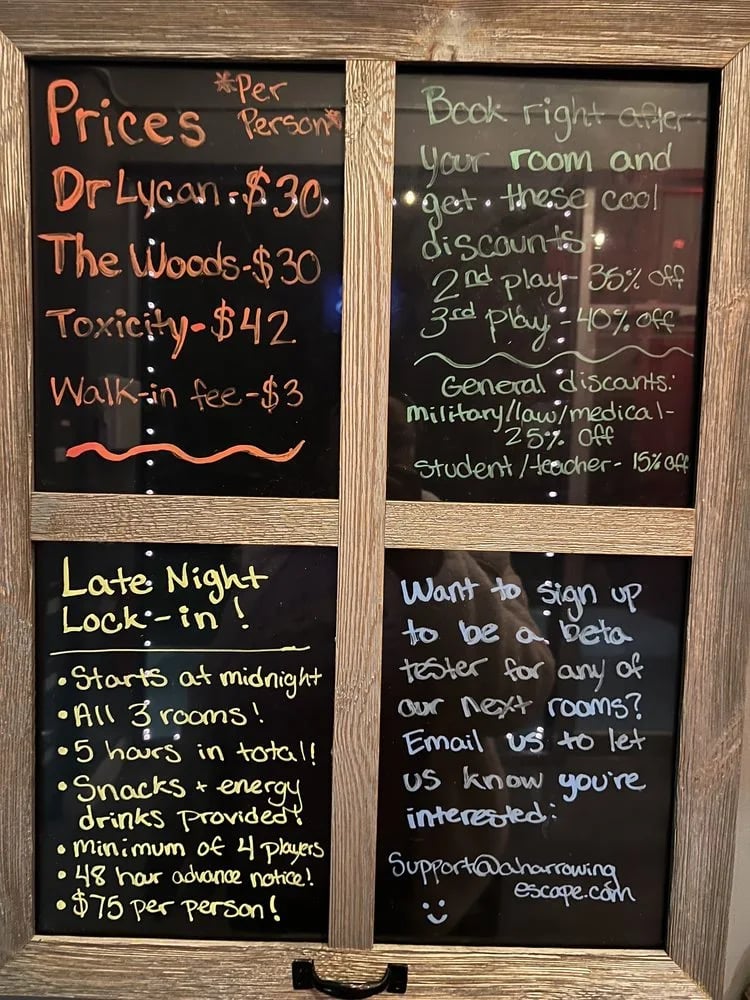 Prices *Per
Person*
Dr Lycan-$30
The Woods-$30
Toxicity-$42
Walk-in fee-$3
Book right after
your room and
get these cool
discounts
2nd play- 35% off
3rd play -40% off
General discounts:
military/law/medical-
25% off
student/teacher- 15% off
Late Night
Lock-in!
•Starts at midnight
•All 3 rooms!
•5 hours in total!
•Snacks + energy
drinks provided!
•minimum of 4 players
•48 hour advance notice!
•$75 per person!
Want to sign up
to be a beta
tester for any of
our next rooms?
Email us to let
us know you're
interested:
Support@aharrowing
escape.com